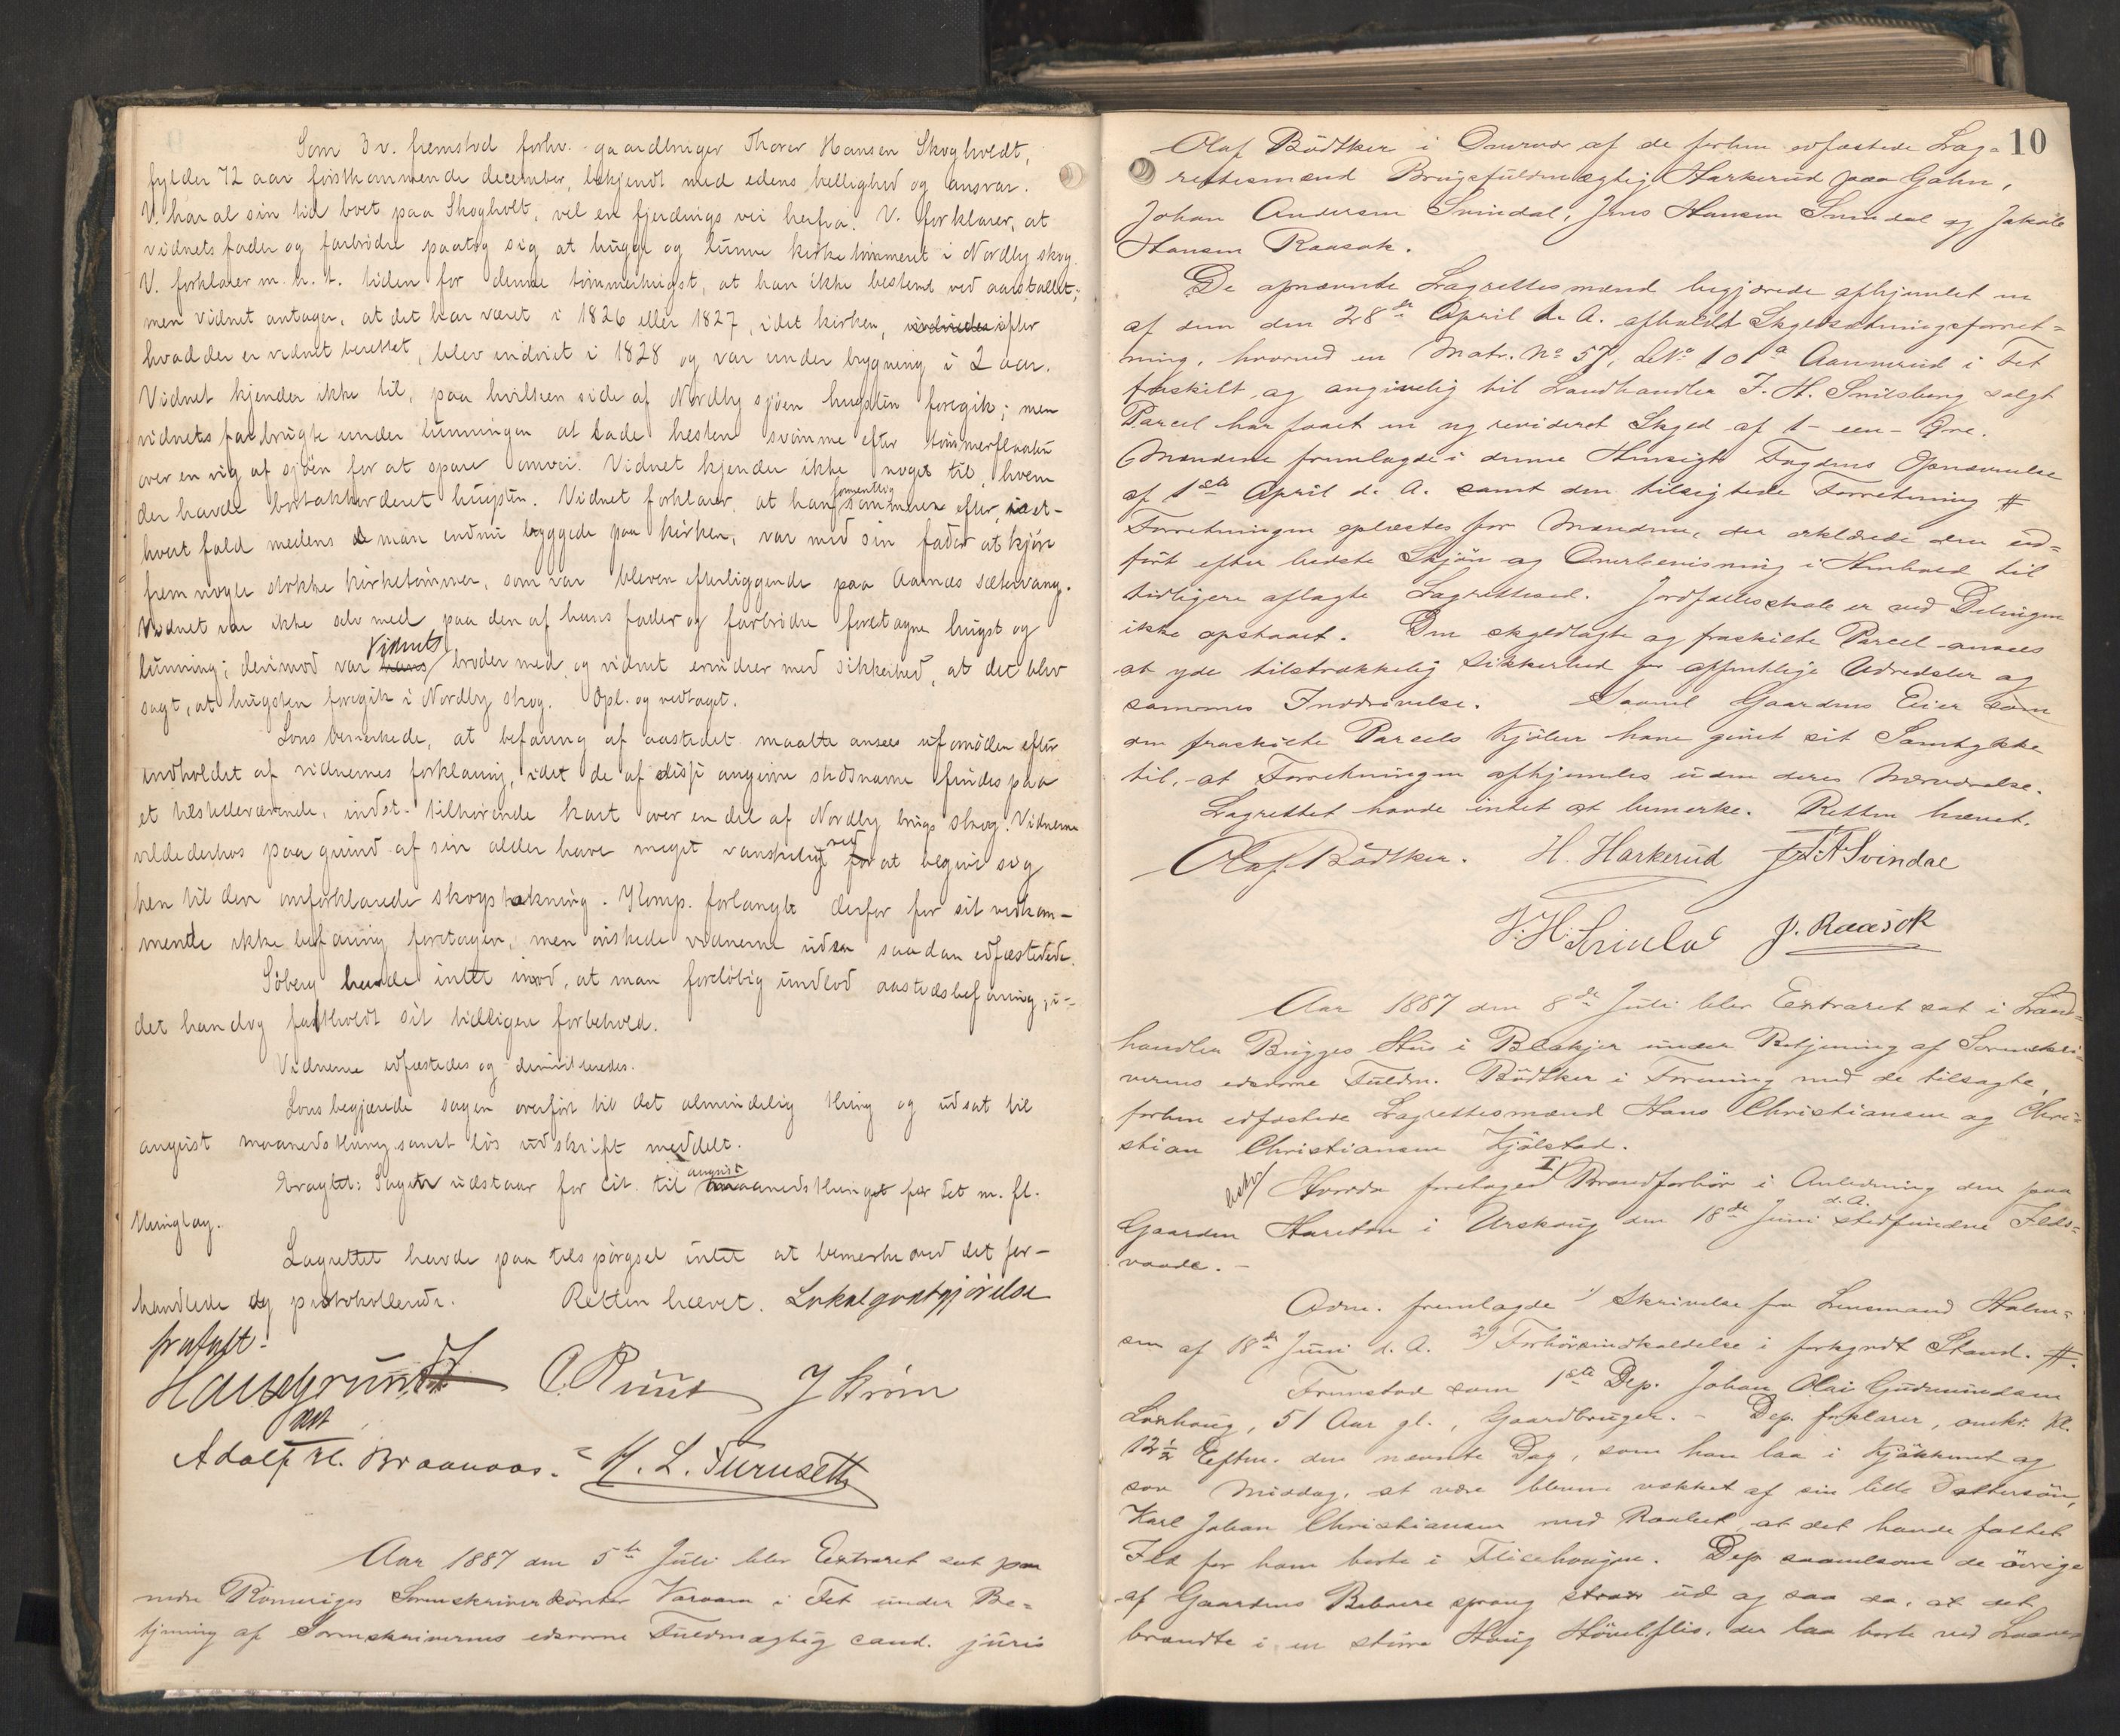 Som 3 v. fremstod forhv. gaardbruger Thorer Hansen Skogholdt,
fylder 72 aar förstkommende december, bekjendt med edens hellighed og ansvar.
V. har al sin tid boet paa Skogholt, vel en fjerdings vei herfra. V. forklarer, at
vidnets fader og farbrödre paatog sig at hugge og lunne kirketömmeret i Nordby skog.
V. forklarer m. h. t. tiden for denne tömmerhugst, at han ikke bestemt ved aarstallet;
men vidnet antager, at det har været i 1826 eller 1827, idet kirken, efter
hvad der er vidnet berettet, blev indviet i 1828 og var under bygning i 2 aar.
Vidnet kjender ikke til, paa hvilken side af Nordby sjöen hugsten foregik; men
vidnets far brugte under lunningen at lade hesten svömme efter tömmerflaaten
over en vig af sjöen for at spare omvei. Vidnet kjender ikke noget til, hvem
der havde bortakkorderet hugsten. Vidnet forklarer, at han formentlig sommeren efter, i et-
hvert fald medens man endnu byggede paa kirken, var med sin fader at kjöre
frem nogle stokke kirketömmer, som var bleven efterliggende paa Aamos sætervang.
Vidnet var ikke selv med paa den af hans fader og farbrödre foretagne hugst og
lunning; derimod var Vidnets broder med, og vidnet erindrer med sikkerhed, at det blev
sagt, at hugsten foregik i Nordby skog. Opl. og vedtaget.
Lous bemerkede, at befaring af aastedet maatte ansees ufornöden efter
indholdet af vidnernes forklaring, idet de af disse angivne stedsnavne findes paa
et tilstedeværende, indst. tilhörende kart over en del af Nordby brugs skog. Vidnerne
vilde derhos paa grund af sin alder have meget vanskeligt ved at begive sig
hen til den omforklarede skogstrækning. Komp. forlangte derfor for sit vedkom-
mende ikke befaring foretagen, men önskede vidnerne uden saadan edfæstede.
Söberg havde intet imod, at man foreløbig undlod aastedsbefaring, i-
det han dog fastholdt sit tidligere forbehold.
Vidnerne edfæstedes og dimitteredes.
Lous begjærede sagen overfört til det almindelig thing og udsat til
august maanedsthing samt lös udskrift meddelt.
Eragtet: Sagen udstaar for cit. til august maanedsthinget for Fet m. fl.
thinglag.
Lagrettet havde paa tilspörgsel intet at bemerke ved det for-
handlede og protokollerede. Retten hævet. Lokalgodtgjörelse
frafalt.
Hansgrund O. Ruud J Ström
Adolf H. Braanaas. H. L. Furuseth
Aar 1887 den 5te Juli blev Extraret sat paa
nedre Romeriges Sorenskriverkontor Varaaen i Fet under Be-
tjening af Sorenskriverens edsvorne Fuldmægtig cand. juris
10
Olaf Bödtker i Overvær af de forhen edfæstede Lag-
rettesmænd Brugsfuldmægtig Harkerud paa Gahn,
Johan Andersen Svindal, Jens Hansen Svindal og Jakob
Hansen Raasok.
De opnævnte Lagrettesmænd begjærede afhjemlet en
af dem den 28de April d. A. afholdt Skyldsætningsforret-
ning, hvorved en Matr. No 57, LNo 101a Aamerud i Fet
fraskilt og angivelig til Landhandler J. H. Smilsberg solgt
Parcel har faaet en ny revideret Skyld af 1 - een - Øre.
Mændene fremlagde i denne Hensigt Fogdens Opnævnelse
af 1ste April d. A. samt den tilsigtede Forretning #
Forretningen oplæstes for Mændene, der erklærede den ud-
fört efter bedste Skjön og Overbevisning i Henhold til
tidligere aflagte Lagrettesed. Jordfællesskab er ved Delingen
ikke opstaaet. Den skyldlagte og fraskilte Parcel ansees
at yde tilstrækkelig Sikkerhed for offentlige Udredsler og
sammes Inddrivelse. Saavel Gaardens Eier som
den fraskilte Parcels Kjöber have givet sit Samtykke
til, at Forretningen afhjemles uden deres Nærværelse.
Lagrettet havde intet at bemerke. Retten hævet.
Olaf Bödtker. H. Harkerud J A Svindal
J. H. Svindal J. Raasok
Aar 1887 den 8de Juli blev Extraret sat i Land-
handler Brugges Hus i Blakjer under Betjening af Sorenskri-
verens edsvorne Fuldm. Bödtker i Forening med de tilsagte,
forhen edfæstede Lagrettesmænd Hans Christiansen og Chri-
stian Christiansen Kjölstad.
Hvorda foretages I Brandforhör i Anledning den paa
Gaarden Hareton i Urskoug den 18de Juni d. A. stedfundne Ilds-
vaade. -
Adm. fremlagde 1) Skrivelse fra Lensmand Halm-
sen af 18de Juni d. A. 2) Forhörsindkaldelse i forkyndt Stand. #.
Fremstod som 1ste Dep. Johan Olai Gudmundsen
Loxhoug, 51 Aar gl., Gaardbruger. - Dep. forklarer, omkr. Kl.
12½ Efterm. den nævnte Dag, som han laa i Kjökkenet og
sov Middag, at være bleven vækket af sin lille Dattersön,
Karl Johan Christiansen med Raabet, at det havde fattet
Ild for ham borte i Flisehougen. Dep. saavelsom de övrige
af Gaardens Beboere sprang strax ud og saa da, at det
brændte i en större Houg Hövelflis, der laa borte ved Laaven